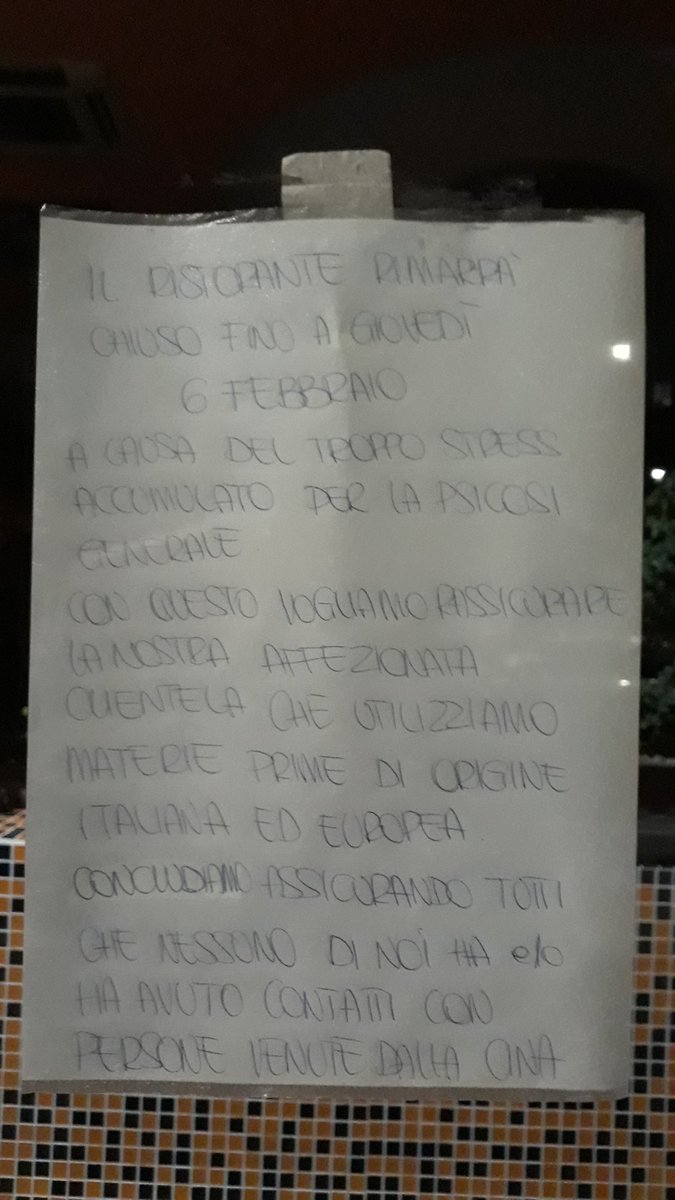 IL RISTORANTE RIMARRA'
CHIUSO FINO A GIOVEDÌ
6 FEBBRAIO
A CAUSA DEL TROPPO STRESS
ACCUMULATO PER LA PSICOSI
GENERALE
CON QUESTO VOGLIAMO RASSICURARE
LA NOSTRA AFFEZIONATA
CLIENTELA CHE UTILIZZIAMO
MATERIE PRIME DI ORIGINE
ITALIANA ED EUROPEA
CONCLUDIAMO ASSICURANDO TUTTI
CHE NESSUNO DI NOI HA e/o
HA AVUTO CONTATTI CON
PERSONE VENUTE DALLA CINA